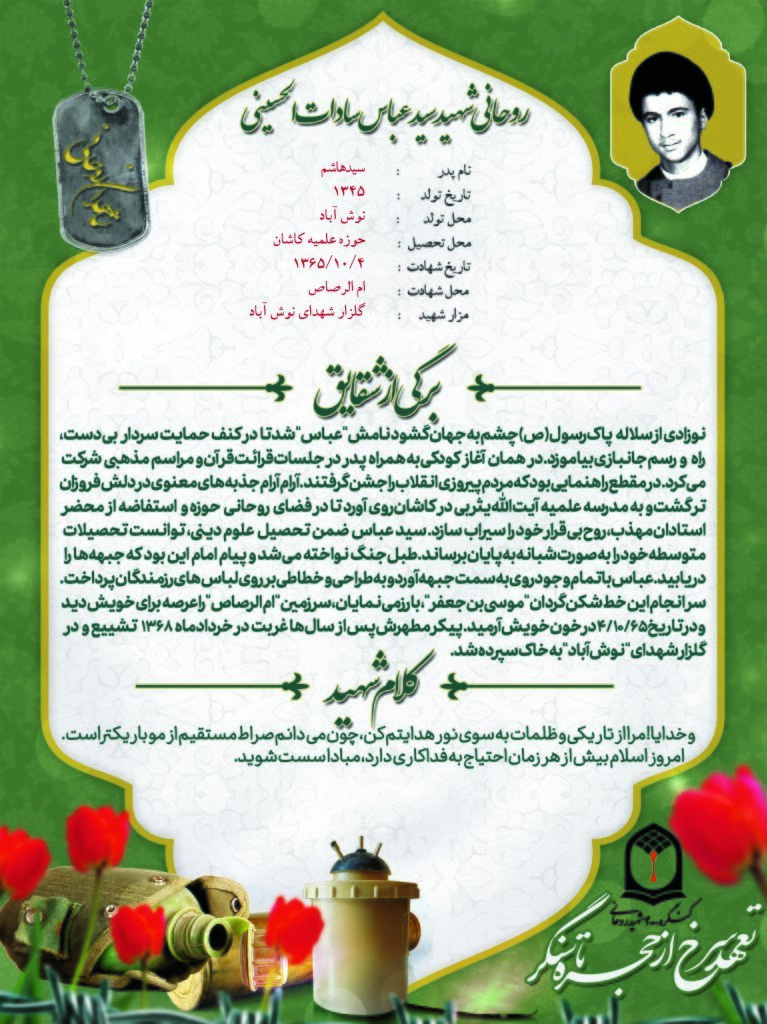 روحانی شهید سید عباس سادات الحسینی
نام پدر : سیدهاشم
تاریخ تولد : ۱۳۴۵
محل تولد : نوش آباد
محل تحصیل : حوزه علمیه کاشان
تاریخ شهادت : ۱۳۶۵/۱۰/۴
محل شهادت : ام الرصاص
مزار شهید : گلزار شهدای نوش آباد
برگی از شقایق
نوزادی از سلاله پاک رسول (ص) چشم به جهان گشود نامش "عباس" شد تا در کنف حمایت سردار بی دست،
راه و رسم جانبازی بیاموزد. در همان آغاز کودکی به همراه پدر در جلسات قرائت قرآن و مراسم مذهبی شرکت
می کرد. در مقطع راهنمایی بود که مردم پیروزی انقلاب را جشن گرفتند. آرام آرام جذبه های معنوی در دلش فروزان
تر گشت و به مدرسه علمیه آیت الله یثربی در کاشان روی آورد تا در فضای روحانی حوزه و استفاضه از محضر
استادان مهذب، روح بی قرار خود را سیراب سازد. سید عباس ضمن تحصیل علوم دینی، توانست تحصیلات
متوسطه خود را به صورت شبانه به پایان برساند. طبل جنگ نواخته می شد و پیام امام این بود که جبهه ها را
دریابید. عباس با تمام وجود روی به سمت جبهه آورد و به طراحی و خطاطی بر روی لباس های رزمندگان پرداخت.
سرانجام این خط شکن گردان "موسی بن جعفر"، با رزمی نمایان، سرزمین "ام الرصاص" را عرصه برای خویش دید
و در تاریخ ۴/۱۰/۶۵ در خون خویش آرمید. پیکر مطهرش پس از سال ها غربت در خردادماه ۱۳۶۸ تشییع و در
گلزار شهدای "نوش آباد" به خاک سپرده شد.
کلام شهید
و خدایا! مرا از تاریکی و ظلمات به سوی نور هدایتم کن، چون می دانم صراط مستقیم از مو باریکتر است.
امروز اسلام بیش از هر زمان احتیاج به فداکاری دارد، مبادا سست شوید.
تعهد سرخ از حجره تا سنگر